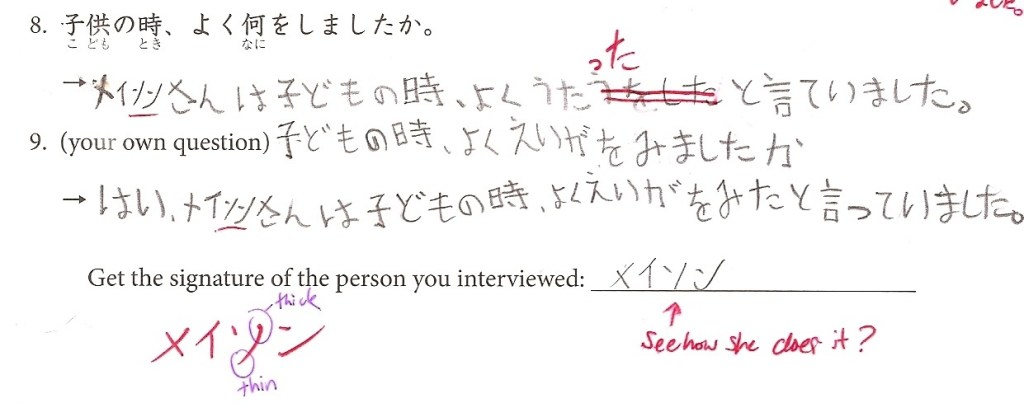 8. 子供の時、よく何をしましたか。
こ ども とき なに
った
→メイソンさんは子どもの時、よくうたうをした と言ていました。
9. (your own question) 子どもの時、よくえいがをみましたか
→ はい、メイソンさんは子どもの時、よくえいがをみたと言っていました。
Get the signature of the person you interviewed: メイソン
thick
メイソン
thin
↑
See how she does it?